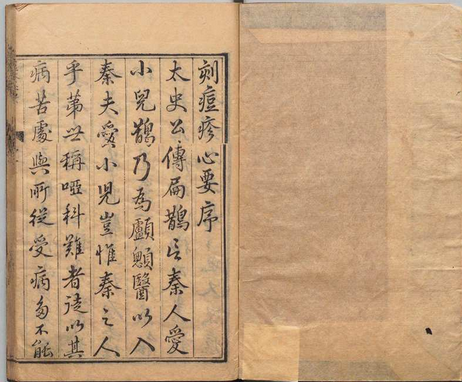 刻痘疹心要序
太史公傳扁鵲言秦人愛
小兒鵲乃為顱顖醫以入
秦夫愛小兒豈惟秦之人
乎第世稱啞科難者徒以其
病苦處與所從受病多不能